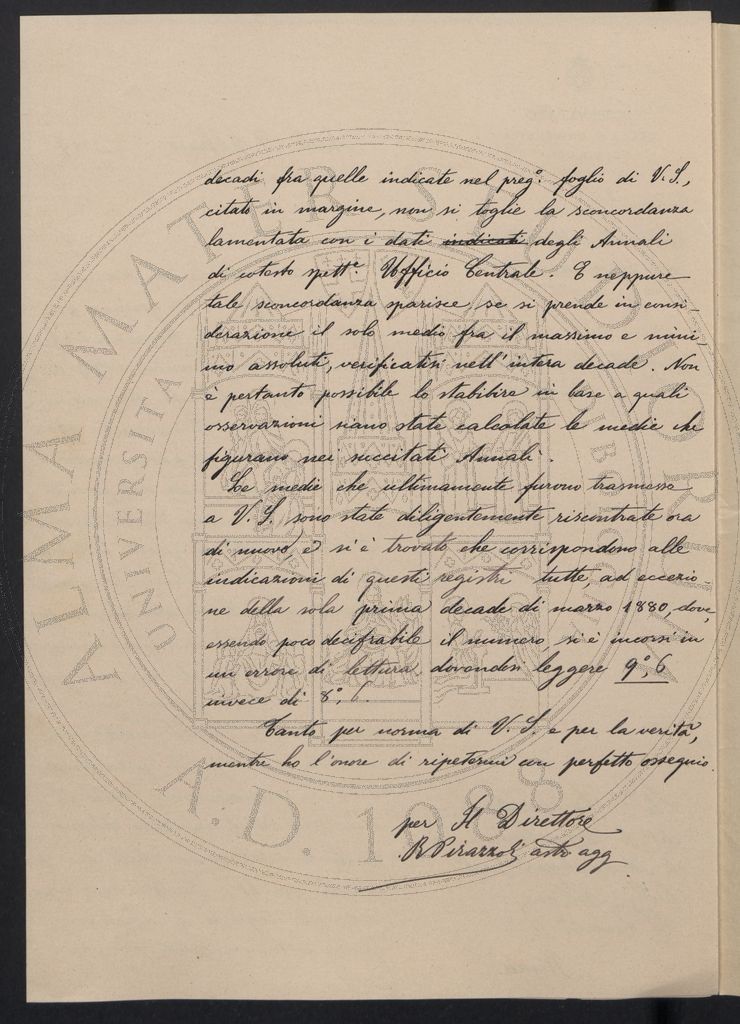 decadi fra quelle indicate nel preg.º foglio di V. S.,
citato in margine, non si toglie la sconcordanza
lamentata con i dati indicati degli Annali
di cotesto spett.e Ufficio Centrale. E neppure
tale sconcordanza sparisce se si prende in consi-
derazione il solo medio fra il massimo e mini-
mo assoluti, verificatisi nell'intera decade. Non
è pertanto possibile lo stabilire in base a quali
osservazioni siano state calcolate le medie che
figurano nei succitati Annali.
Le medie che ultimamente furono trasmesse
a V. S. sono state diligentemente riscontrate ora
di nuovo, e si è trovato che corrispondono alle
indicazioni di questi registri tutte, ad eccezio-
ne della sola prima decade di marzo 1880, dove,
essendo poco decifrabile il numero, si è incorsi in
un errore di lettura, dovendosi leggere 9º,6
invece di 8º,6.
Tanto per norma di V. S. e per la verità,
mentre ho l'onore di ripetermi con perfetto ossequio.
per Il Direttore
R Pirazzoli astr agg
ALMA MATER STUDIORUM
UNIVERSITA
A.D. 1088